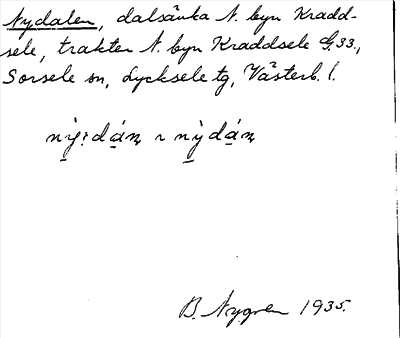 Nydalen, dalsänka N. byn Kradd-
sele, trakten N. byn Kraddsele G. 33.,
Sorsele sn, Lycksele tg, Västerb. l.
B. Nygren 1935.